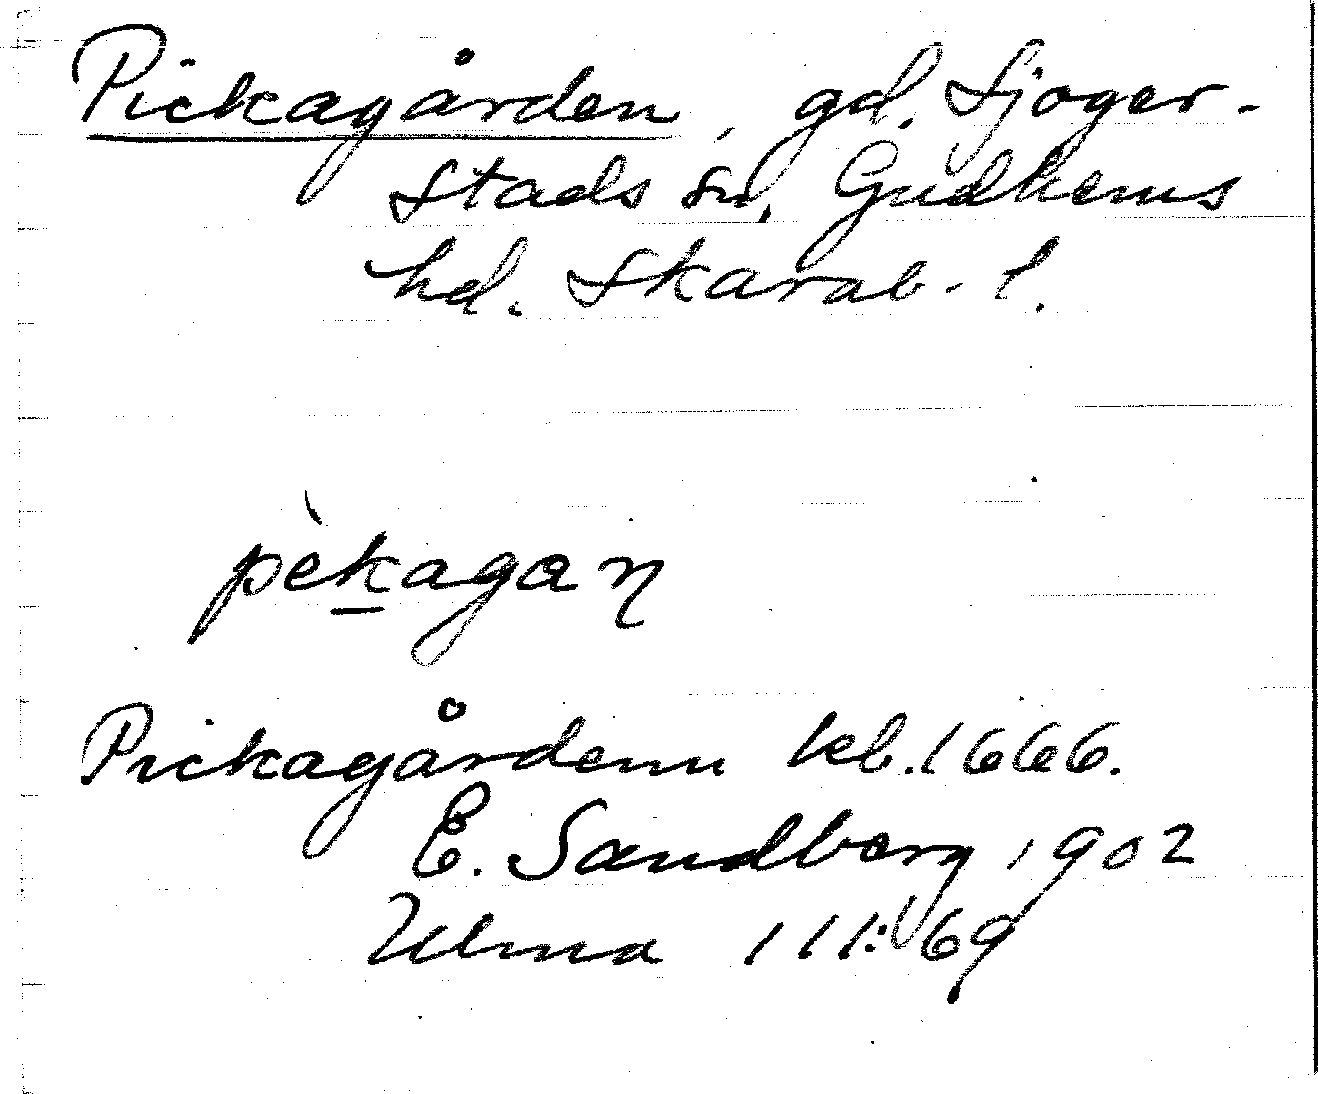 Pickagården, gd. Sjoger-
stads sn, Gudhems
hd. Skarab. l.
pèkagaɳ
Pickagårdenn kb. 1666.
E. Sandberg 1902
Ulma 111:69